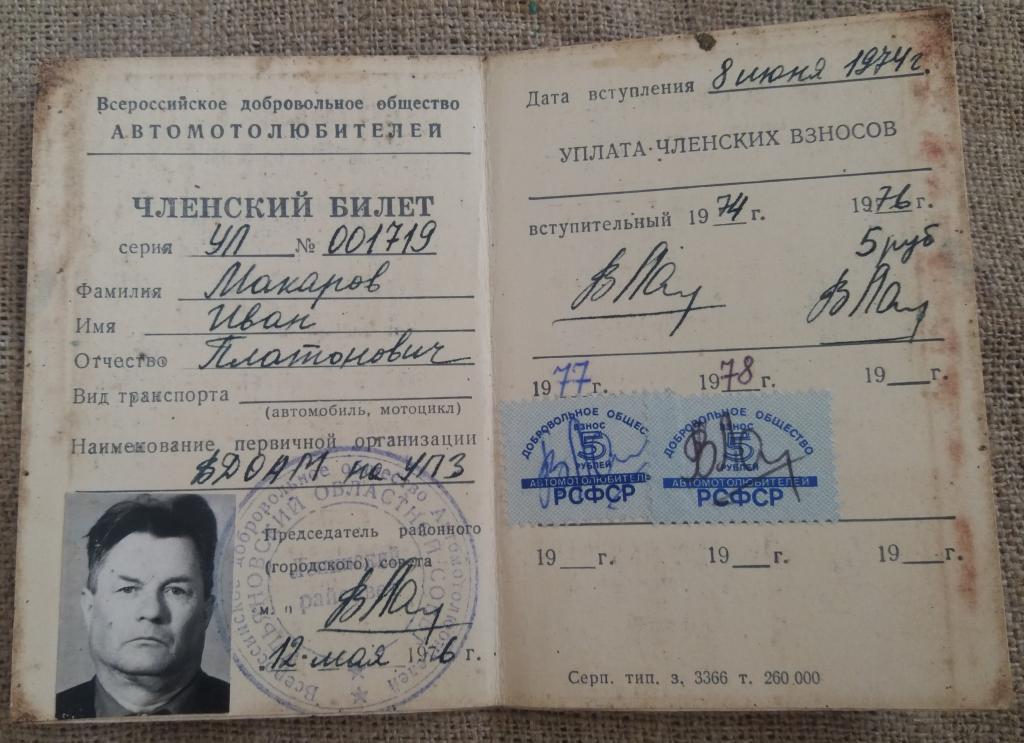 Всероссийское добровольное общество
АВТОМОТОЛЮБИТЕЛЕЙ
ЧЛЕНСКИЙ БИЛЕТ
серия УЛ № 001719
Фамилия Макаров
Имя Иван
Отчество Платонович
Вид транспорта
(автомобиль, мотоцикл)
Наименование первичной организации
ВДОАМ на УПЗ
Председатель районного
(городского) совета
м. п
12 мая 1976 г.
Дата вступления 8 июня 1974 г.
УПЛАТА ЧЛЕНСКИХ ВЗНОСОВ
вступительный 1974 г. 1976 г.
5 руб
1977 г. 1978 г. 19 г.
ДОБРОВОЛЬНОЕ ОБЩЕС
ВЗНОС
5
РУБЛЕЙ
АВТОМОТОЛЮБИТЕЛЕ
РСФСР
ДОБРОВОЛЬНОЕ ОБЩЕСТВО
ВЗНОС
5
РУБЛЕЙ
АВТОМОТОЛЮБИТЕЛЕЙ
РСФСР
19 г. 19 г. 19 г.
Серп. тип. з. 3366 т. 260 000